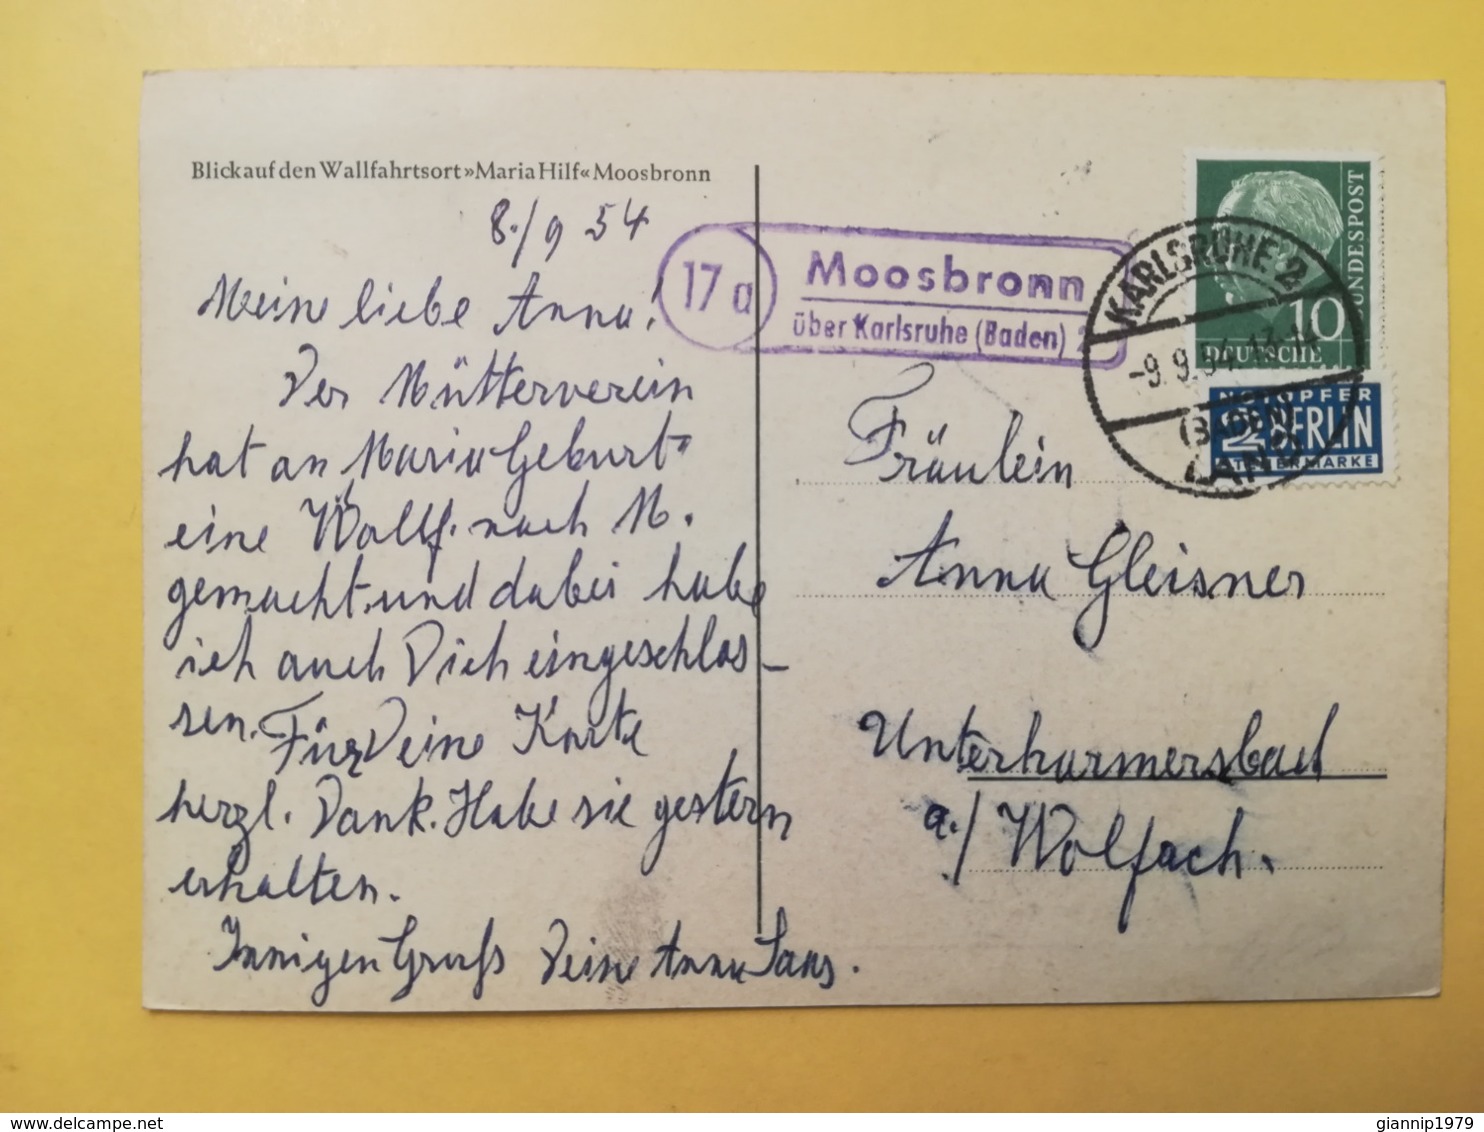 Blick auf den Wallfahrtsort »Maria Hilf« Moosbronn
8./9 54
Meine liebe Anna!
Der Mütterverein
hat an Maria Geburt
eine Wallf. nach M.
gemacht und dabei habe
ich auch Dich eingeschlos-
sen. Für Deine Karte
herzl. Dank. Habe sie gestern
erhalten.
Innigen Gruß Deine Anna
17a
Moosbronn
über Karlsruhe (Baden) 2
KARLSRUHE 2
-9.9.54.13-14
(BADEN)
LAND
BUNDESPOST
10
DEUTSCHE
NOTOPFER
2 BERLIN
STEUERMARKE
Fräulein
Anna Gleisner
Unterharmersbach
a./Wolfach.
giannip1979